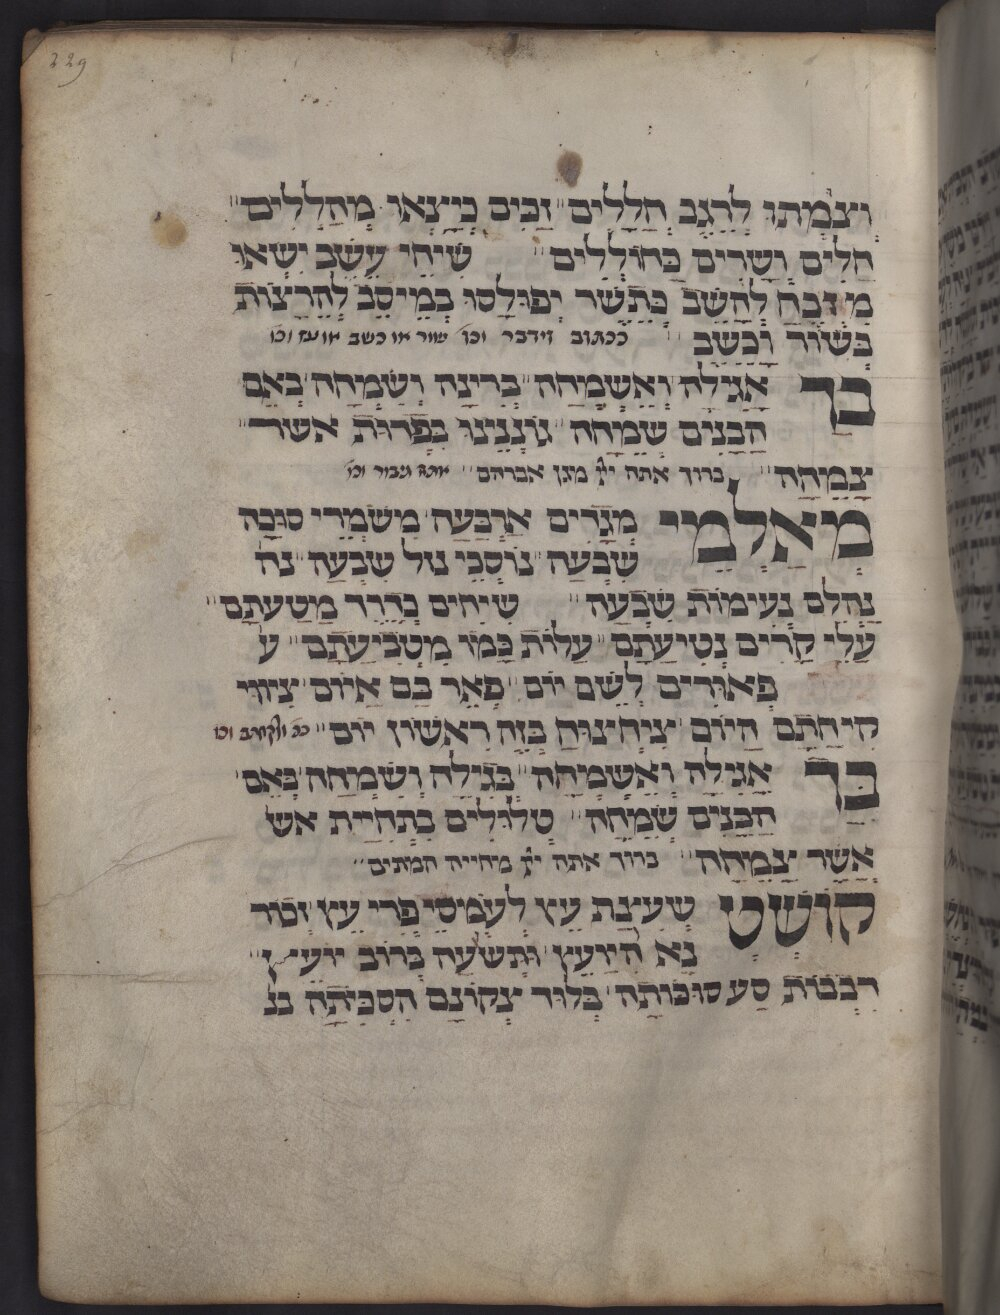 229
וְצִמְתוּ לְרֶגֶב חֲלָלִים" זַכִּים כְּיָצְאוּ מְחַלְלִים"
חֹלִים וְשָׁרִים כְּחוֹלְלִים" שִׂיחֵי עֵשֶׂב יִשְׂאוּ
מִזְבֵּחַ לְחַשֵּׁב כְּתֶשֶׁר יְפוּלָסוּ בְמֵיסַב לְהַרְצוֹת
בְּשׁוֹר וְכֶשֶׂב" ככתוב וידבר וכו' שור או כשב או עז וכו'
כך אָגִילָה וְאֶשְׂמְחָה" בְּרִינָה וְשִׂמְחָה' כְּאֵם
הַבָּנִים שְׂמֵחָה" גוֹנְנֵינוּ כְּפֵרוֹת אשר"
צָמְחָה" ברוך אתה יי מגן אברהם" אתה גבור וכו'
מְאַלְּמֵי מְגָדִים אַרְבָּעָה' מִשְׁמְרֵי סוּכָּה
שִׁבְעָה' נוֹסְכֵי גול שִׁבְעָה' נה
נַחֲלֵם נְעִימוֹת שִׂבְעָה" שִׂיחִים בְּדֶרֶךְ מַטַּעְתָּם"
עֲלֵי קָרִים נְטִיעָתָם" עֲלוֹת כְּמוֹ מִטְבִיעָתָם" ע
פְּאוּרִים לְשֵׁם יוֹם' פְּאֵר בָּם אָיוֹם' צִיווּי
קִיחָתָם הַיּוֹם' יְצִיחְצוּחַ בְּזֶה רִאשׁוֹן יוֹם" ככ' ולקחתם וכו'
כך אָגִילָה וְאֶשְׂמְחָה" בְּגִילָה וְשִׂמְחָה' כְּאֵם
הַבָּנִים שְׂמֵחָה" טְלוּלִים כִּתְחִיַּית אש
אֲשֶׁר צָמְחָה" ברוך אתה יי מחייה המתים"
קוֹשְׁט שְׁעִינַת עֵץ לְעֲמוּסֵי פְּרִי עֵץ' זְכוֹר
נָא הִיוָּעֵץ' וּתְשׁוּעָה בְּרוֹב יוֹעֵץ"
רִבְבוֹת סַע סוּכּוֹתָה' בְּלוּד צְקוּנָם הִסְכַּתָּה בנ